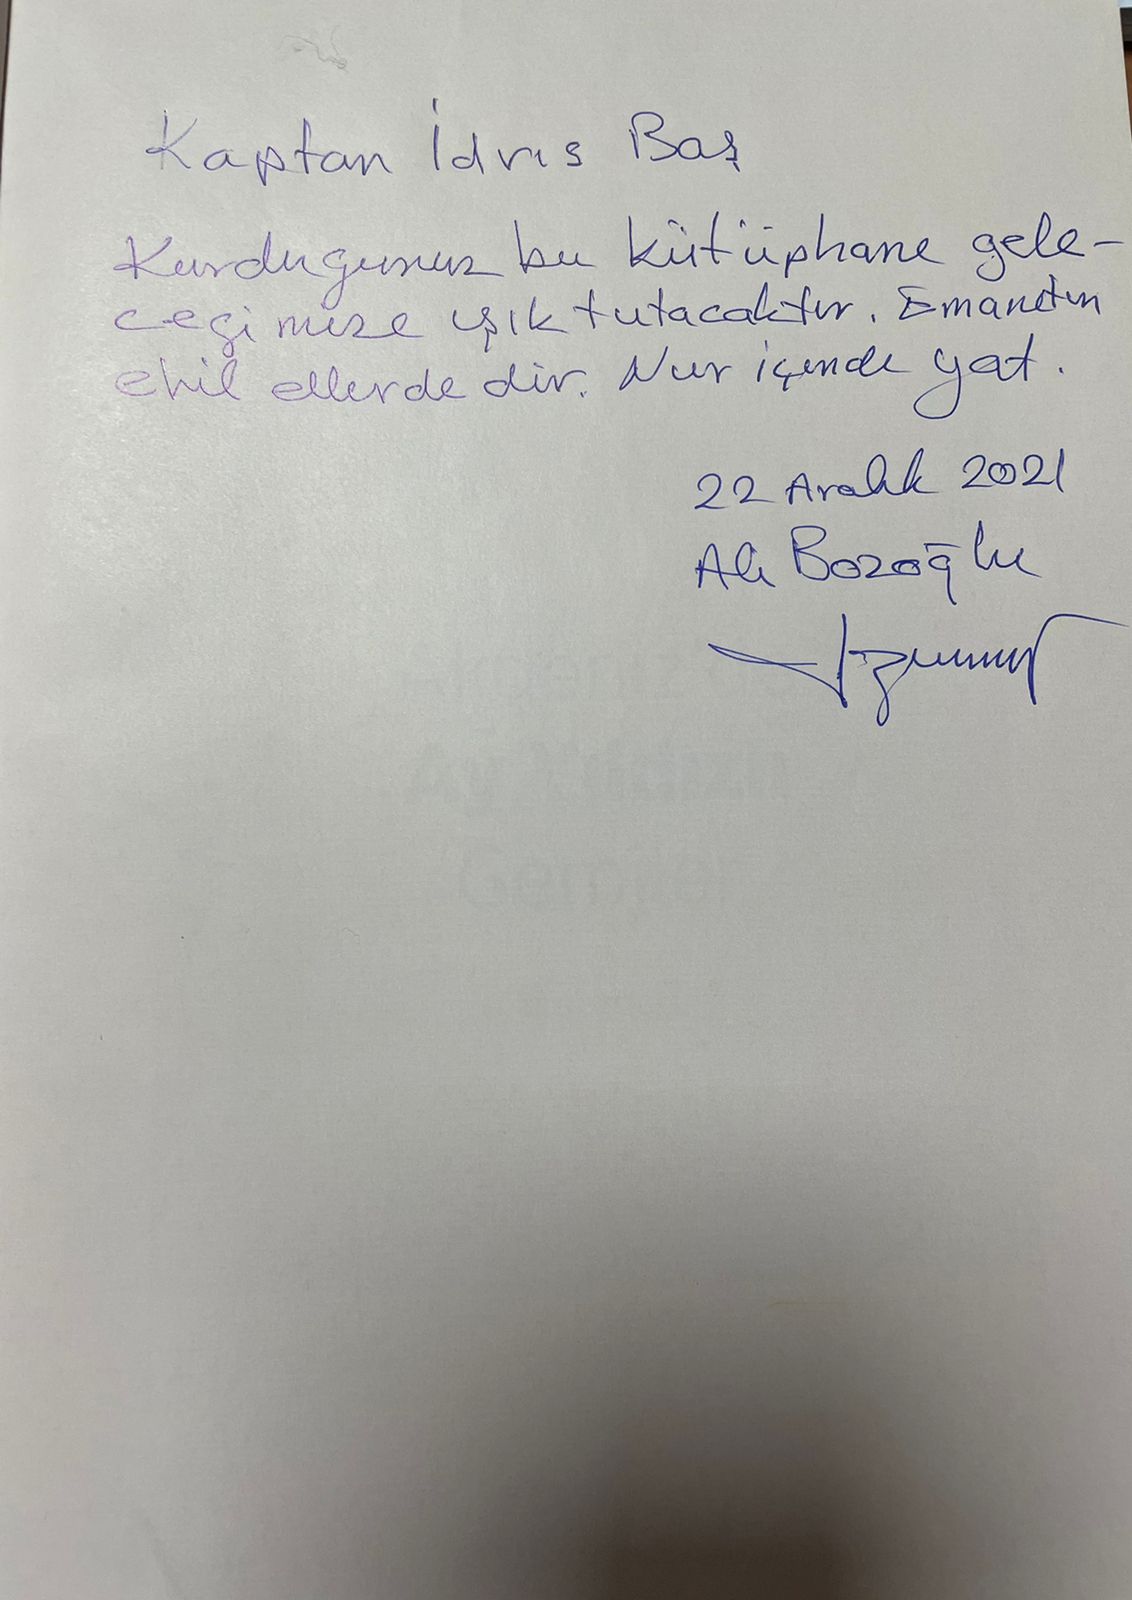 Kaptan İdris Baş
Kurduğunuz bu kütüphane gele-
ceğimize ışık tutacaktır. Emanetin
ehil ellerdedir. Nur içinde yat.
22 Aralık 2021
Ali Bozoğlu